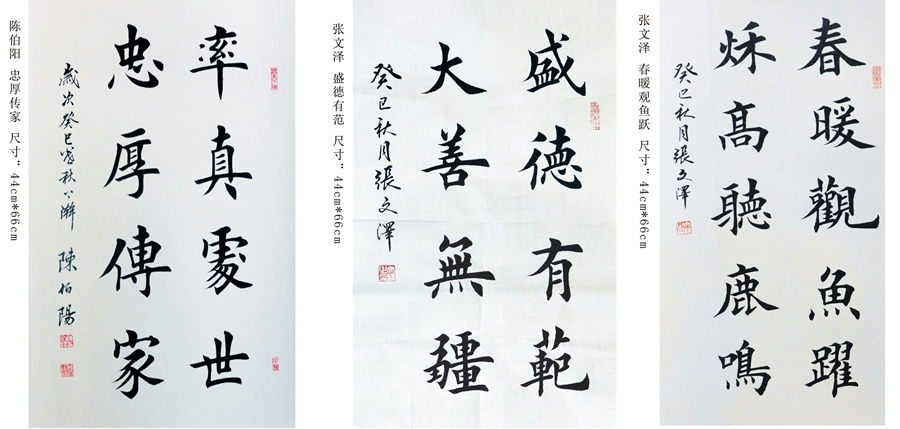 陈伯阳 忠厚传家 尺寸：44cm*66cm
率真處世
忠厚傳家
歲次癸巳
陳伯陽
张文泽 盛德有范 尺寸：44cm*66cm
盛德有範
大善無疆
癸巳秋月張文澤
张文泽 春暖观鱼跃 尺寸：44cm*66cm
春暖觀魚躍
秌高聽鹿鳴
癸巳秋月張文澤